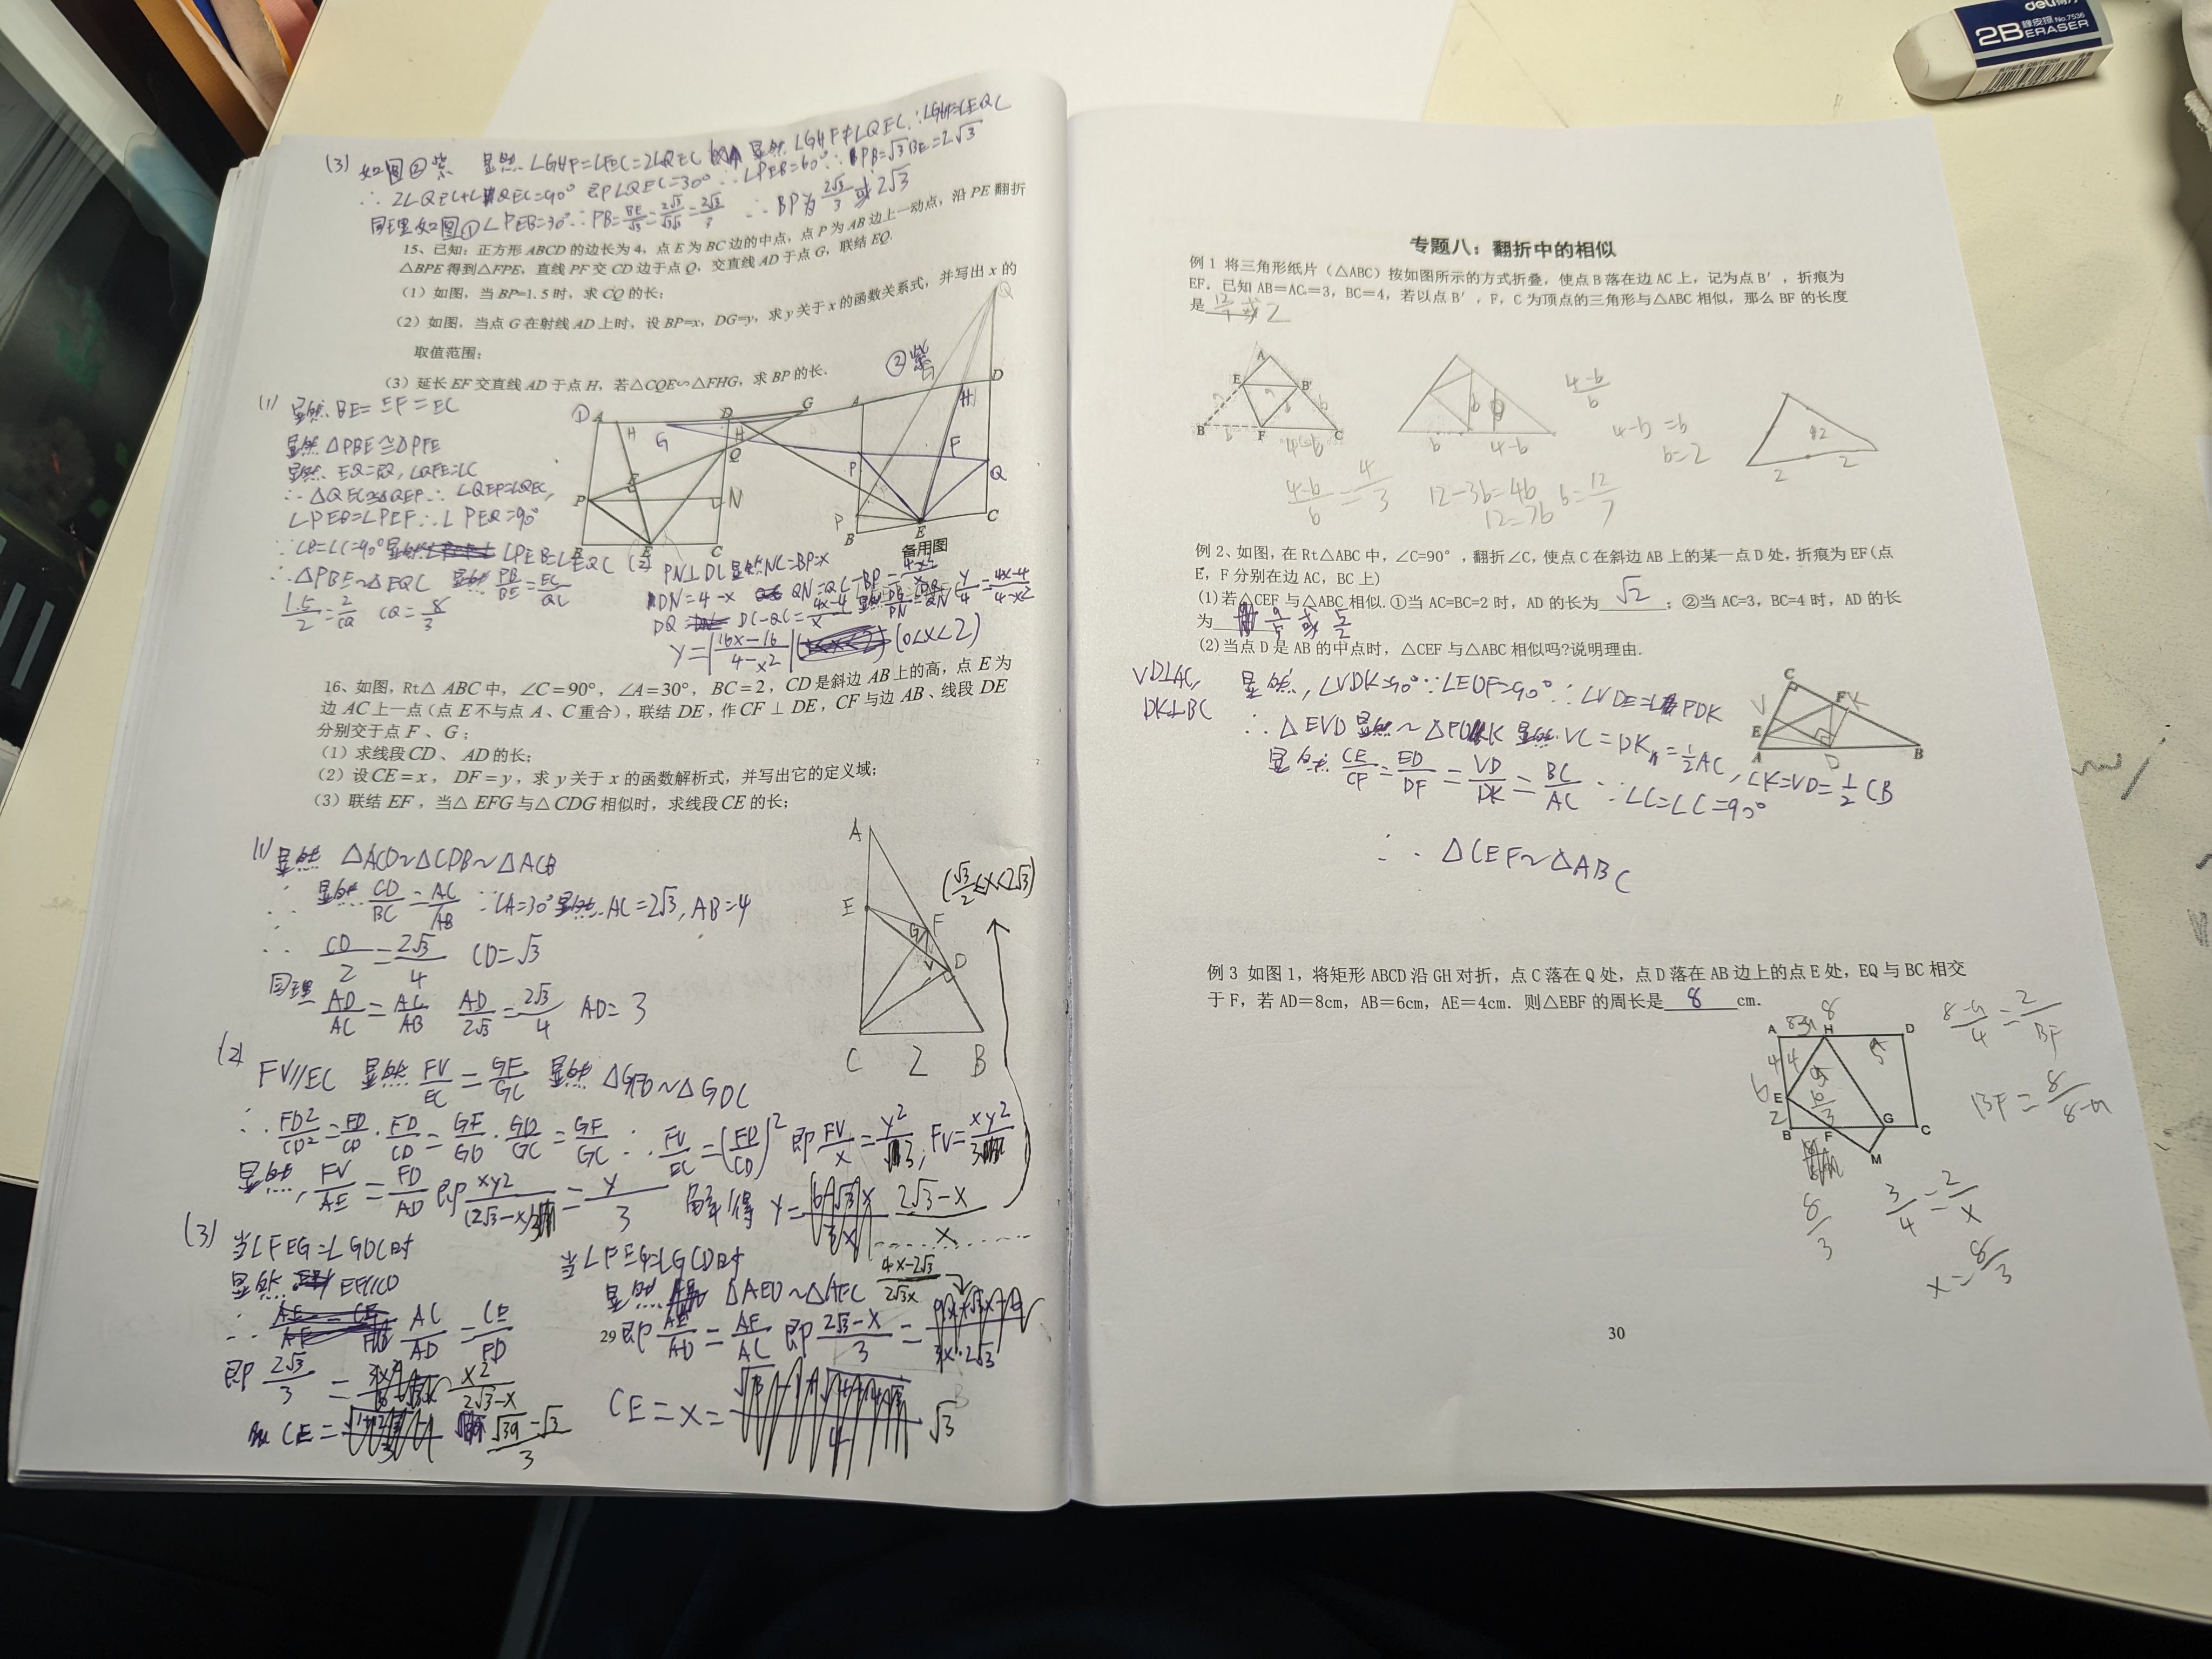 (3) 如图②紫 显然∠GHF=∠FEC=2∠QEC 显然∠GHF≠∠QEC ∴∠GHF=∠EQC
∴ 2∠QEC+∠QEC=90° 即∠QEC=30° ∴∠PEB=60° ∴PB=√3BE=2√3
同理如图①∠PEB=30° ∴PB=BE/√3=2√3/3 ∴BP为2√3/3或2√3
15、已知：正方形 ABCD 的边长为 4，点 E 为 BC 边的中点，点 P 为 AB 边上一动点，沿 PE 翻折
△BPE 得到△FPE，直线 PF 交 CD 边于点 Q，交直线 AD 于点 G，联结 EQ.
（1）如图，当 BP=1.5 时，求 CQ 的长；
（2）如图，当点 G 在射线 AD 上时，设 BP=x，DG=y，求 y 关于 x 的函数关系式，并写出 x 的
取值范围；
（3）延长 EF 交直线 AD 于点 H，若△CQE∽△FHG，求 BP 的长.
(1) 显然 BE=EF=EC
显然 △PBE≌△PFE
显然 EQ=EQ, ∠QFE=∠C
∴△QEC≌△QEF ∴∠QEF=∠QEC,
∠PEB=∠PEF ∴∠PEQ=90°
∵∠B=∠C=90° ∠PEB=∠EQC
∴△PBE∽△EQC 显然 PB/BE=EC/QC
1.5/2=2/CQ CQ=8/3
① A H D G
H Q
P F N
B E C
② 紫
Q
G
A H D
P F
Q
P
B E C
备用图
(2) PN⊥DC 显然NC=BP=x
DN=4-x QN=QC-BP=4-x²/x
DQ= DC-QC=4x-4/x
y/4=4x-4/4-x²
y=|16x-16/4-x²| (0<x<2)
16、如图，Rt△ ABC 中，∠C=90°，∠A=30°，BC=2，CD 是斜边 AB 上的高，点 E 为
边 AC 上一点（点 E 不与点 A、C 重合），联结 DE，作 CF⊥DE，CF 与边 AB、线段 DE
分别交于点 F、G；
（1）求线段 CD、AD 的长；
（2）设 CE=x，DF=y，求 y 关于 x 的函数解析式，并写出它的定义域；
（3）联结 EF，当△ EFG 与△ CDG 相似时，求线段 CE 的长；
(1) 显然 △ACD∽△CDB∽△ACB
∴ 显然 CD/BC=AC/AB ∵∠A=30° 显然 AC=2√3, AB=4
∴ CD/2=2√3/4 CD=√3
同理 AD/AC=AC/AB AD/2√3=2√3/4 AD=3
A
E
F
G
V
D
C 2 B
(√3/2≤x<2√3)
(2) FV//EC 显然 FV/EC=GF/GC 显然 △GFD∽△GDC
∴ FD²/CD²=FD/CD·FD/CD=GF/GD·GD/GC=GF/GC ∴ FV/EC=(FD/CD)² 即 FV/x=y²/3, FV=xy²/3
显然, FV/AE=FD/AD 即 xy²/(2√3-x)3=y/3 解得 y= 2√3-x/x
(3) 当∠FEG=∠GDC时
显然 EF//CD
∴ AC/AD=CE/FD
即 2√3/3= x²/2√3-x
CE= √39-√3/3
当∠FEG=∠GCD时
显然 △AED∽△AFC 4x-2√3/2√3x
即 AE/AD=AF/AC 即 2√3-x/3=
CE=x= √3
29
专题八：翻折中的相似
例 1 将三角形纸片（△ABC）按如图所示的方式折叠，使点 B 落在边 AC 上，记为点 B′，折痕为
EF．已知 AB＝AC＝3，BC＝4，若以点 B′，F，C 为顶点的三角形与△ABC 相似，那么 BF 的长度
是 12/7或2
A
E B'
B F C
b 4-b
b 4-b
4-b/b
4-b=b
b=2
2 2
4-b/b=4/3 12-3b=4b b=12/7
12=7b
例 2、如图，在 Rt△ABC 中，∠C=90°，翻折∠C，使点 C 在斜边 AB 上的某一点 D 处，折痕为 EF(点
E，F 分别在边 AC，BC 上)
(1)若△CEF 与△ABC 相似.①当 AC=BC=2 时，AD 的长为 √2 ；②当 AC=3，BC=4 时，AD 的长
为 9/5 或 5/2
(2)当点 D 是 AB 的中点时，△CEF 与△ABC 相似吗?说明理由.
VD⊥AC,
DK⊥BC
显然, ∠VDK=90° ∵∠EDF=90° ∴∠VDE=∠FDK
∴ △EVD 显然∽△FDK 显然 VC=DK=1/2AC, CK=VD=1/2CB
显然 CE/CF=ED/DF=VD/DK=BC/AC ∵∠C=∠C=90°
∴ △CEF∽△ABC
C
V F K
E
A D B
例 3 如图 1，将矩形 ABCD 沿 GH 对折，点 C 落在 Q 处，点 D 落在 AB 边上的点 E 处，EQ 与 BC 相交
于 F，若 AD=8cm，AB=6cm，AE=4cm．则△EBF 的周长是 8 cm．
A H D
E
B F G C
M
8-a/4=2/BF
BF=8/8-a
3/4=2/x
x=8/3
8/3
30
deli
2B 橡皮擦 No.7536
ERASER